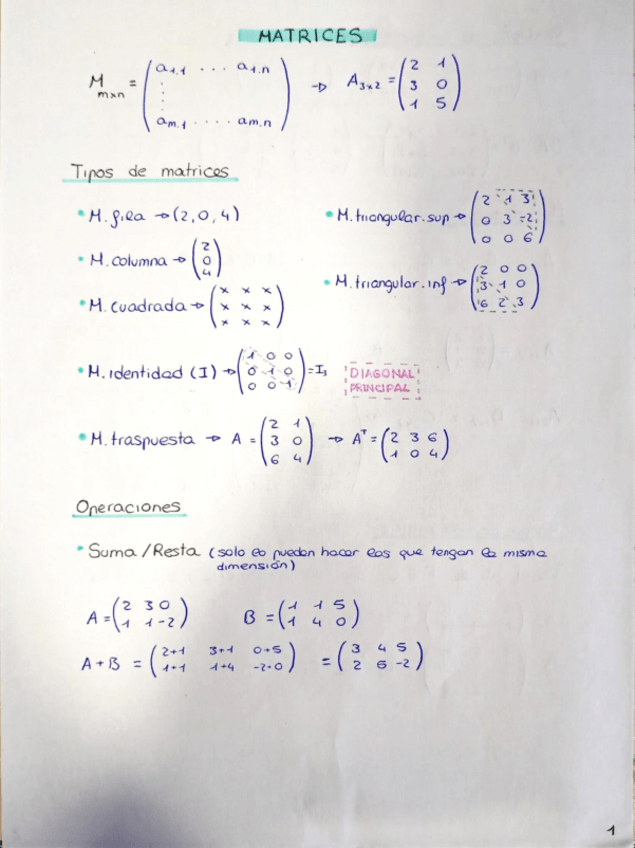 MATRICES
M mxn = ( a1.1 ... a1.n ⋮ am.1 .... am.n ) → A3x2 = ( 2 1 / 3 0 / 1 5 )
Tipos de matrices
• M. fila → (2, 0, 4)
• M. columna → ( 2 / 0 / 4 )
• M. cuadrada → ( x x x / x x x / x x x )
• M. triangular. sup → ( 2 1 3 / 0 3 -2 / 0 0 6 )
• M. triangular. inf → ( 2 0 0 / 3 1 0 / 6 2 3 )
• M. identidad (I) → ( 1 0 0 / 0 1 0 / 0 0 1 ) = I3
DIAGONAL
PRINCIPAL
• M. traspuesta → A = ( 2 1 / 3 0 / 6 4 ) → Aᵀ = ( 2 3 6 / 1 0 4 )
Operaciones
• Suma / Resta (solo lo pueden hacer las que tengan la misma
dimensión)
A = ( 2 3 0 / 1 1 -2 ) B = ( 1 1 5 / 1 4 0 )
A + B = ( 2+1 3+1 0+5 / 1+1 1+4 -2+0 ) = ( 3 4 5 / 2 5 -2 )
1